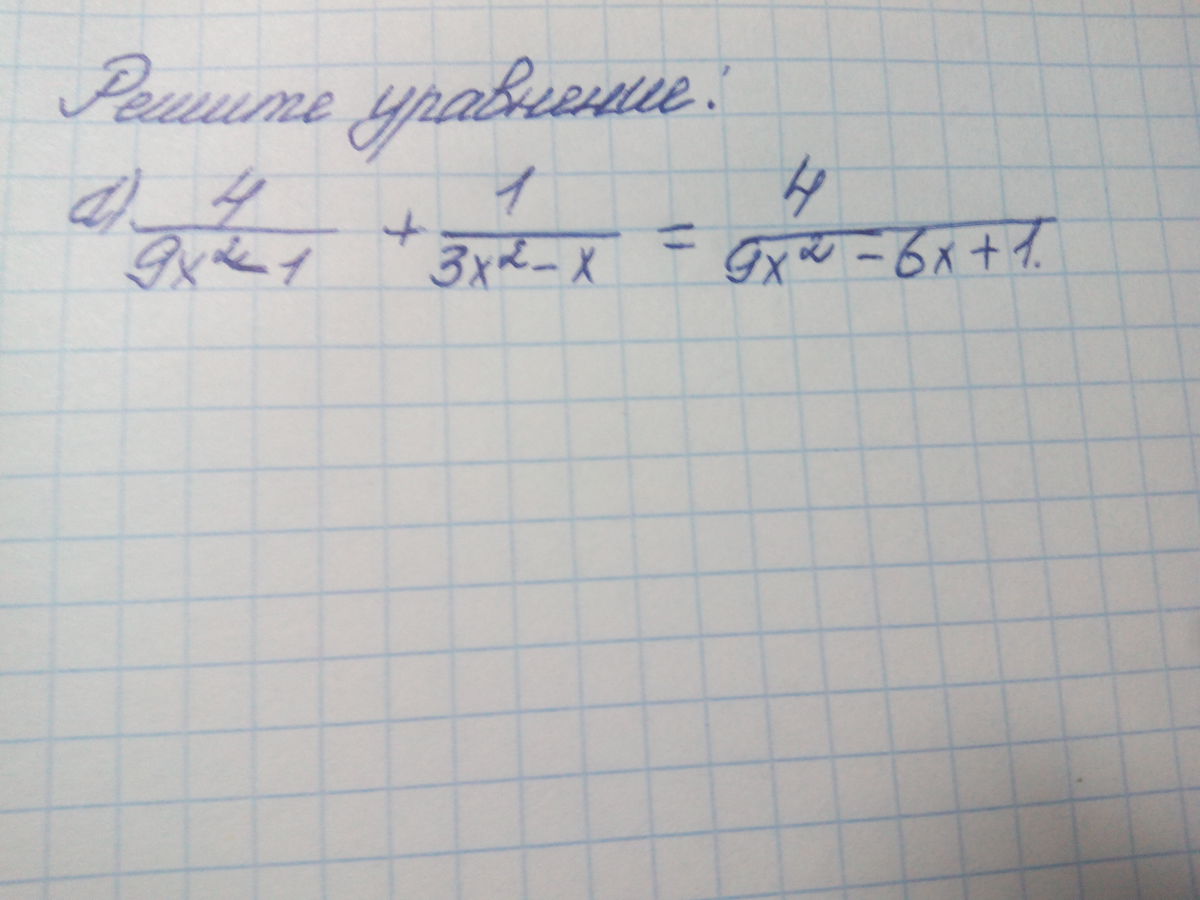 Решите уравнение:
d) 4/(9x²-1) + 1/(3x²-x) = 4/(9x²-6x+1.